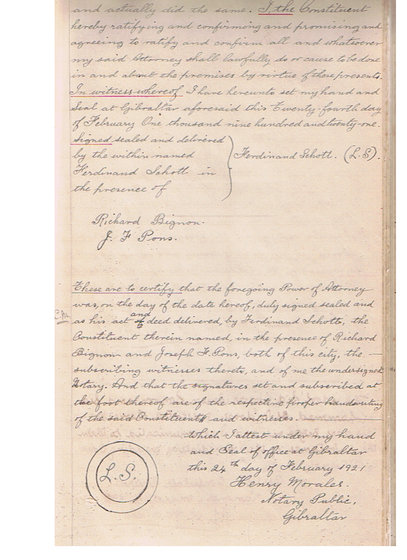 and actually did the same. I the Constituent
hereby ratifying and confirming and promising and
agreeing to ratify and confirm all and whatsoever
my said Attorney shall lawfully do or cause to be done
in and about the premises by virtue of these presents.
In witness whereof I have hereunto set my hand and
Seal at Gibraltar aforesaid this Twenty fourth day
of February One thousand nine hundred and twenty-one.
Signed sealed and delivered
by the within named
Ferdinand Schott in
the presence of
Ferdinand Schott. (L.S).
Richard Bignon.
J. F Pons.
These are to certify that the foregoing Power of Attorney
was, on the day of the date hereof, duly signed sealed and
as his act and deed delivered, by Ferdinand Schott, the
Constituent therein named, in the presence of Richard
Bignon and Joseph F. Pons, both of this city, the
subscribing witnesses thereto, and of me the undersigned
Notary. And that the signatures set and subscribed at
the foot thereof are of the respective proper handwriting
of the said Constituent and witnesses.
Which I attest under my hand
and Seal of office at Gibraltar
this 24th day of February 1921
Henry Morales.
Notary Public,
Gibraltar
L.S.